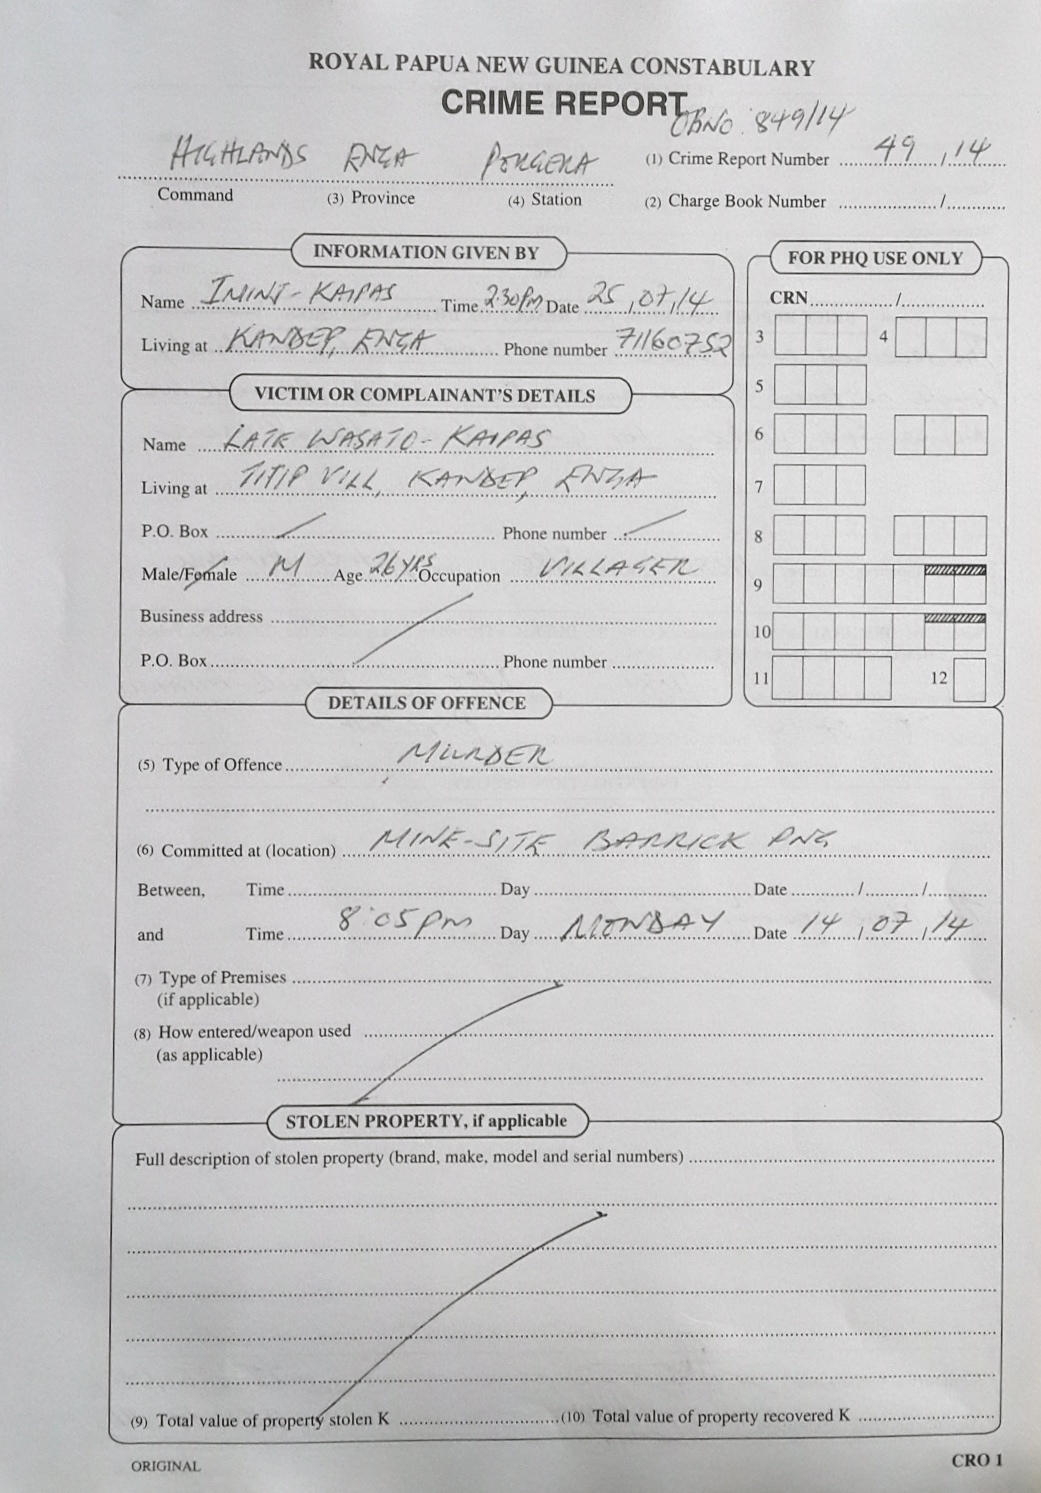 ROYAL PAPUA NEW GUINEA CONSTABULARY
CRIME REPORT
OBNO: 849/14
HIGHLANDS ENGA PORGERA (1) Crime Report Number 49 / 14
Command (3) Province (4) Station (2) Charge Book Number ........../..........
INFORMATION GIVEN BY
Name IMINI-KAIPAS Time 2:30pm Date 25/07/14
Living at KANDEP, ENGA Phone number 71160752
FOR PHQ USE ONLY
CRN............/............
3 4
5
6
7
8
9
10
11 12
VICTIM OR COMPLAINANT'S DETAILS
Name LATE WASATO-KAIPAS
Living at TITIP VILL, KANDEP, ENGA
P.O. Box Phone number
Male/Female M Age 26YRS Occupation VILLAGER
Business address
P.O. Box Phone number
DETAILS OF OFFENCE
(5) Type of Offence MURDER
(6) Committed at (location) MINE-SITE BARRICK PNG
Between, Time Day Date ......../......../........
and Time 8:05pm Day MONDAY Date 14/07/14
(7) Type of Premises
(if applicable)
(8) How entered/weapon used
(as applicable)
STOLEN PROPERTY, if applicable
Full description of stolen property (brand, make, model and serial numbers)
(9) Total value of property stolen K (10) Total value of property recovered K
ORIGINAL CRO 1